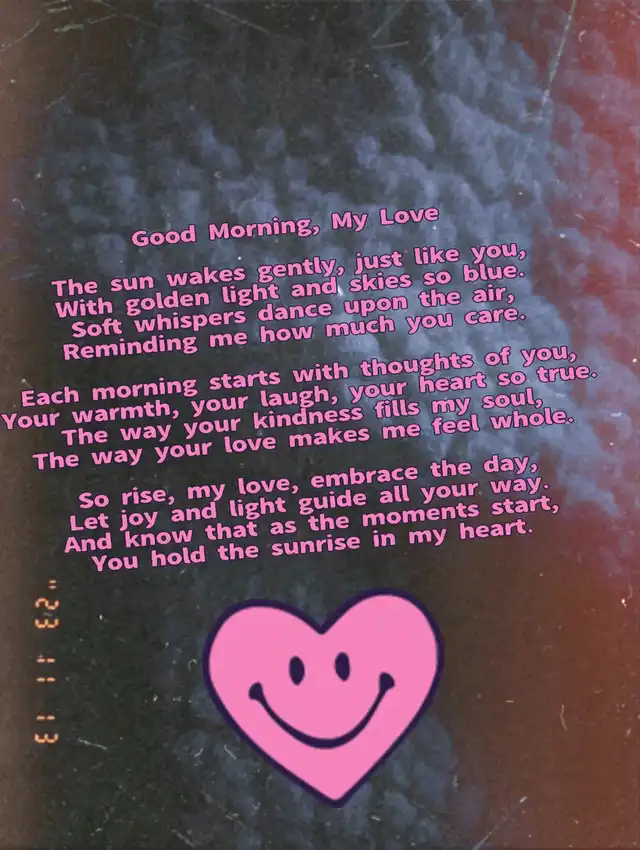 Good Morning, My Love
The sun wakes gently, just like you,
With golden light and skies so blue.
Soft whispers dance upon the air,
Reminding me how much you care.
Each morning starts with thoughts of you,
Your warmth, your laugh, your heart so true.
The way your kindness fills my soul,
The way your love makes me feel whole.
So rise, my love, embrace the day,
Let joy and light guide all your way.
And know that as the moments start,
You hold the sunrise in my heart.